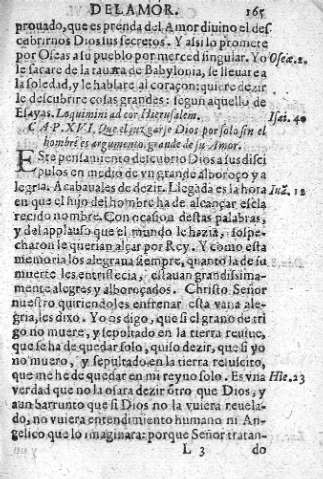 DEL AMOR. 165
prouado, que es prenda del Amor diuino el des
cubrirnos Dios sus secretos. Y assi lo promete
por Oseas a su pueblo por merced singular. Yo Oseæ. 2.
le sacare de la de Babylonia, le lleuare a
la soledad, y le hablare al coraçon: quiere dezir
le descubrire cosas grandes: segun aquello de
Esayas. Loquimini ad cor Hierusalem. Isai. 40
CAP. XVI. Que el juzgarse Dios por solo sin el
hombre es argumento grande de su Amor.
ESte pensamiento descubrio Dios a sus disci
pulos en medio de vn grande alboroço y a
legria. Acabauales de dezir. Llegada es la hora Iuã. 12
en que el hijo del hombre ha de alcançar escla
recido nombre. Con ocasion destas palabras,
y del applauso que el mundo le hazia, sospe-
charon le querian alçar por Rey. Y como esta
memoria los alegraua siempre, quanto la de su
muerte les entristecia, estauan grandissima-
mente alegres y alboroçados. Christo Señor
nuestro quiriendoles enfrenar esta vana ale-
gria, les dixo. Yo os digo, que si el grano de tri
go no muere, y sepultado en la tierra reuiue,
que se ha de quedar solo, quiso dezir, que si yo
no muero, y sepultado en la tierra resuscito,
que me he de quedar en mi reyno solo. Es vna Hie. 23
verdad que no la osara dezir otro que Dios, y
aun barrunto que si Dios no la vuiera reuela-
do, no vuiera entendimiento humano ni An-
gelico que lo imaginara: porque Señor tratan-
L 3 do